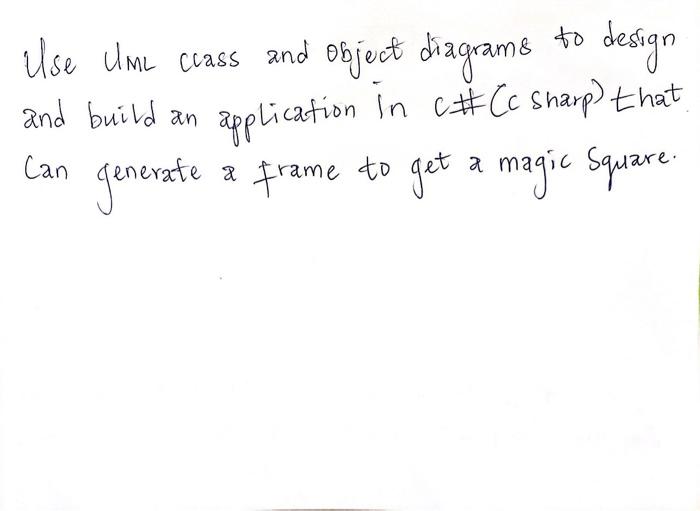 Use UML class and object diagrams to design
and build an application in C# (C sharp) that
Can generate a frame to get a magic Square.